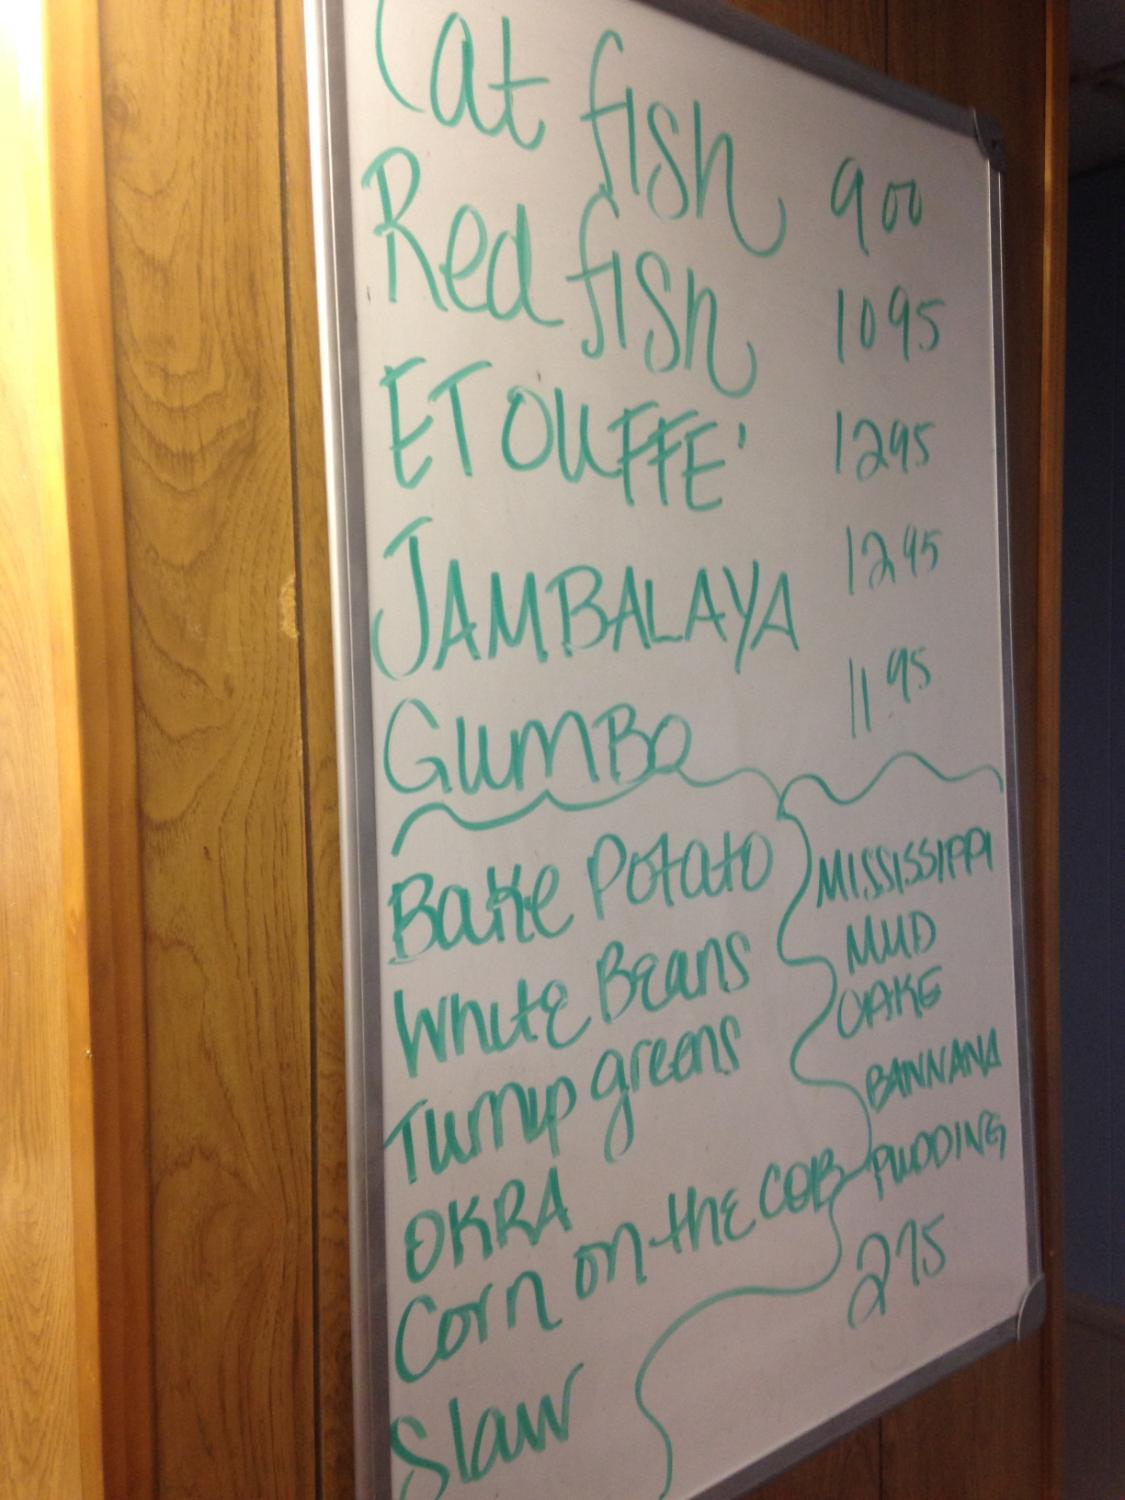 Cat fish 900
Red fish 1095
ETOUFFE' 1295
JAMBALAYA 1295
GUMBO 11 95
Bake Potato
White Beans
Turnip greens
OKRA
Corn on the COB
Slaw
MISSISSIPPI
MUD
CAKE
BANNANA
PUDDING
275